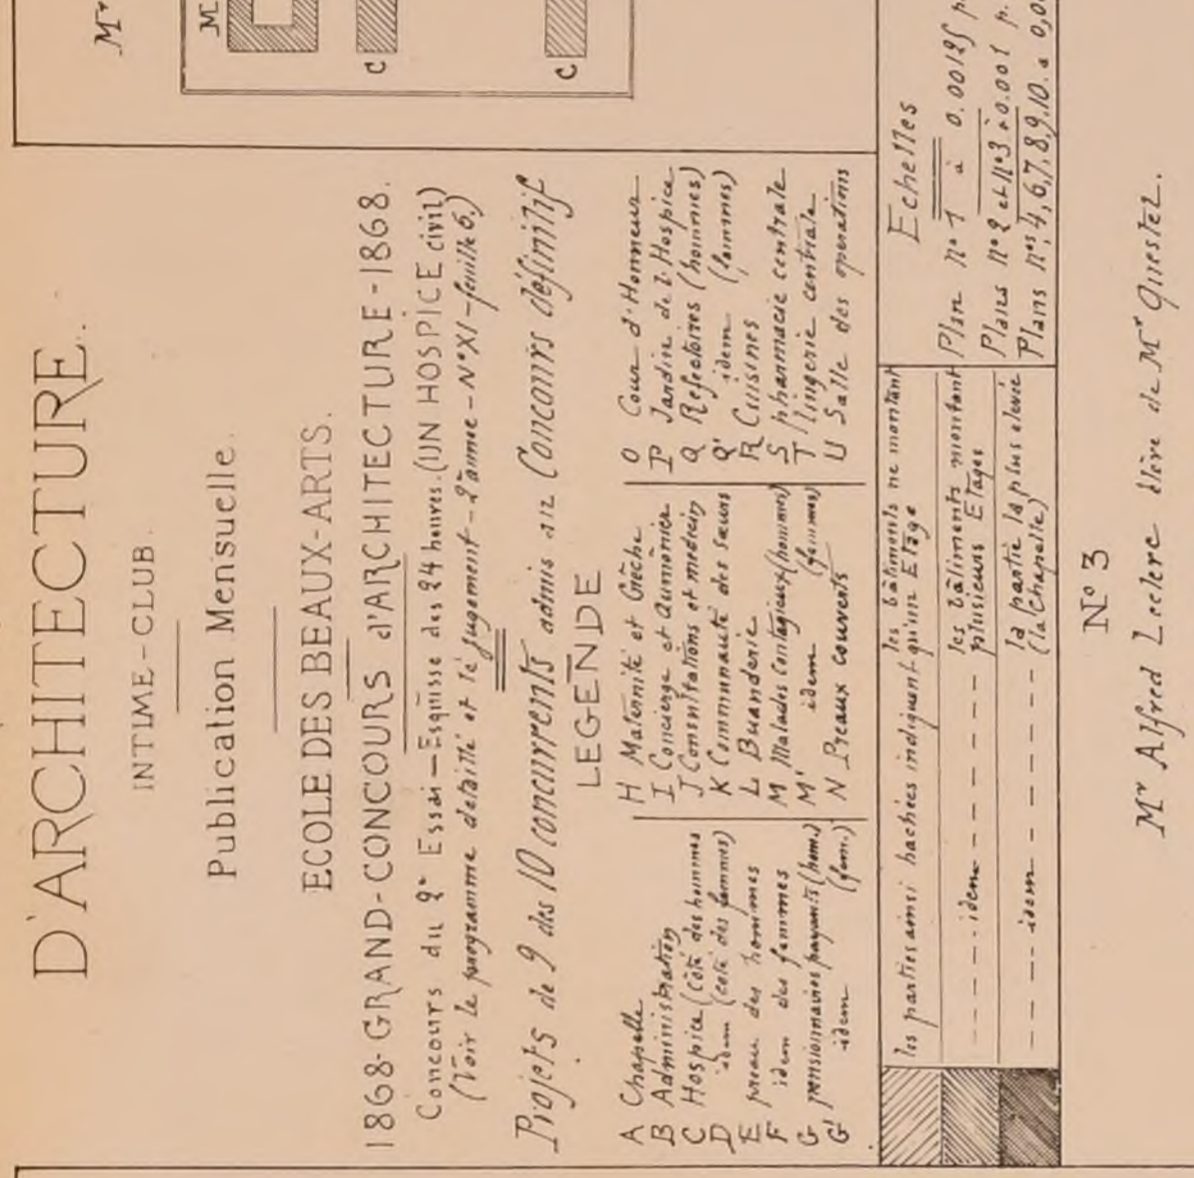 D'ARCHITECTURE.
INTIME-CLUB.
Publication Mensuelle.
ECOLE DES BEAUX-ARTS.
1868-GRAND-CONCOURS d'ARCHITECTURE-1868.
Concours du 2e Essai—Esquisse des 24 heures. (UN HOSPICE civil)
(Voir le programme detaillé et le jugement-2e année-N°XI-feuille 6.)
Projets de 9 des 10 concurrents admis au Concours définitif
LEGENDE
A Chapelle
B Administration
C Hospice (côté des hommes
D idem (côté des femmes)
E preau des hommes
F idem des femmes
G pensionnaires payants (hom.)
G' idem (fem.)
H Maternité et Crèche
I Concierge et Aumônier
J Consultations et medecin
K Communauté des sœurs
L Buanderie
M Malades Contagieux (hommes)
M' idem (femmes)
N Preaux couverts
O Cour d'Honneur
P Jardin de l'Hospice
Q Refectoires (hommes)
Q' idem (femmes)
R Cuisines
S pharmacie centrale
T lingerie centrale
U Salle des operations
les parties ainsi hachées indiquent les bâtiments ne montant qu'un Etage
----idem----- les bâtiments montant plusieurs Etages
----idem----- la partie la plus elevée (la Chapelle)
Echelles
Plan n° 1 à 0.00125 p.
Plans n° 2 et N°3 à 0.001 p.
Plans nos 4,6,7,8,9,10. à 0,00
N° 3
Mr Alfred Leclerc élève de Mr Questel.
Mr
M
C
C